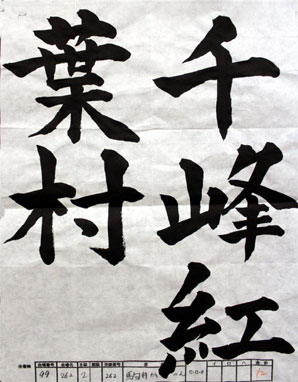 千峰紅
葉村
99 262 2 262